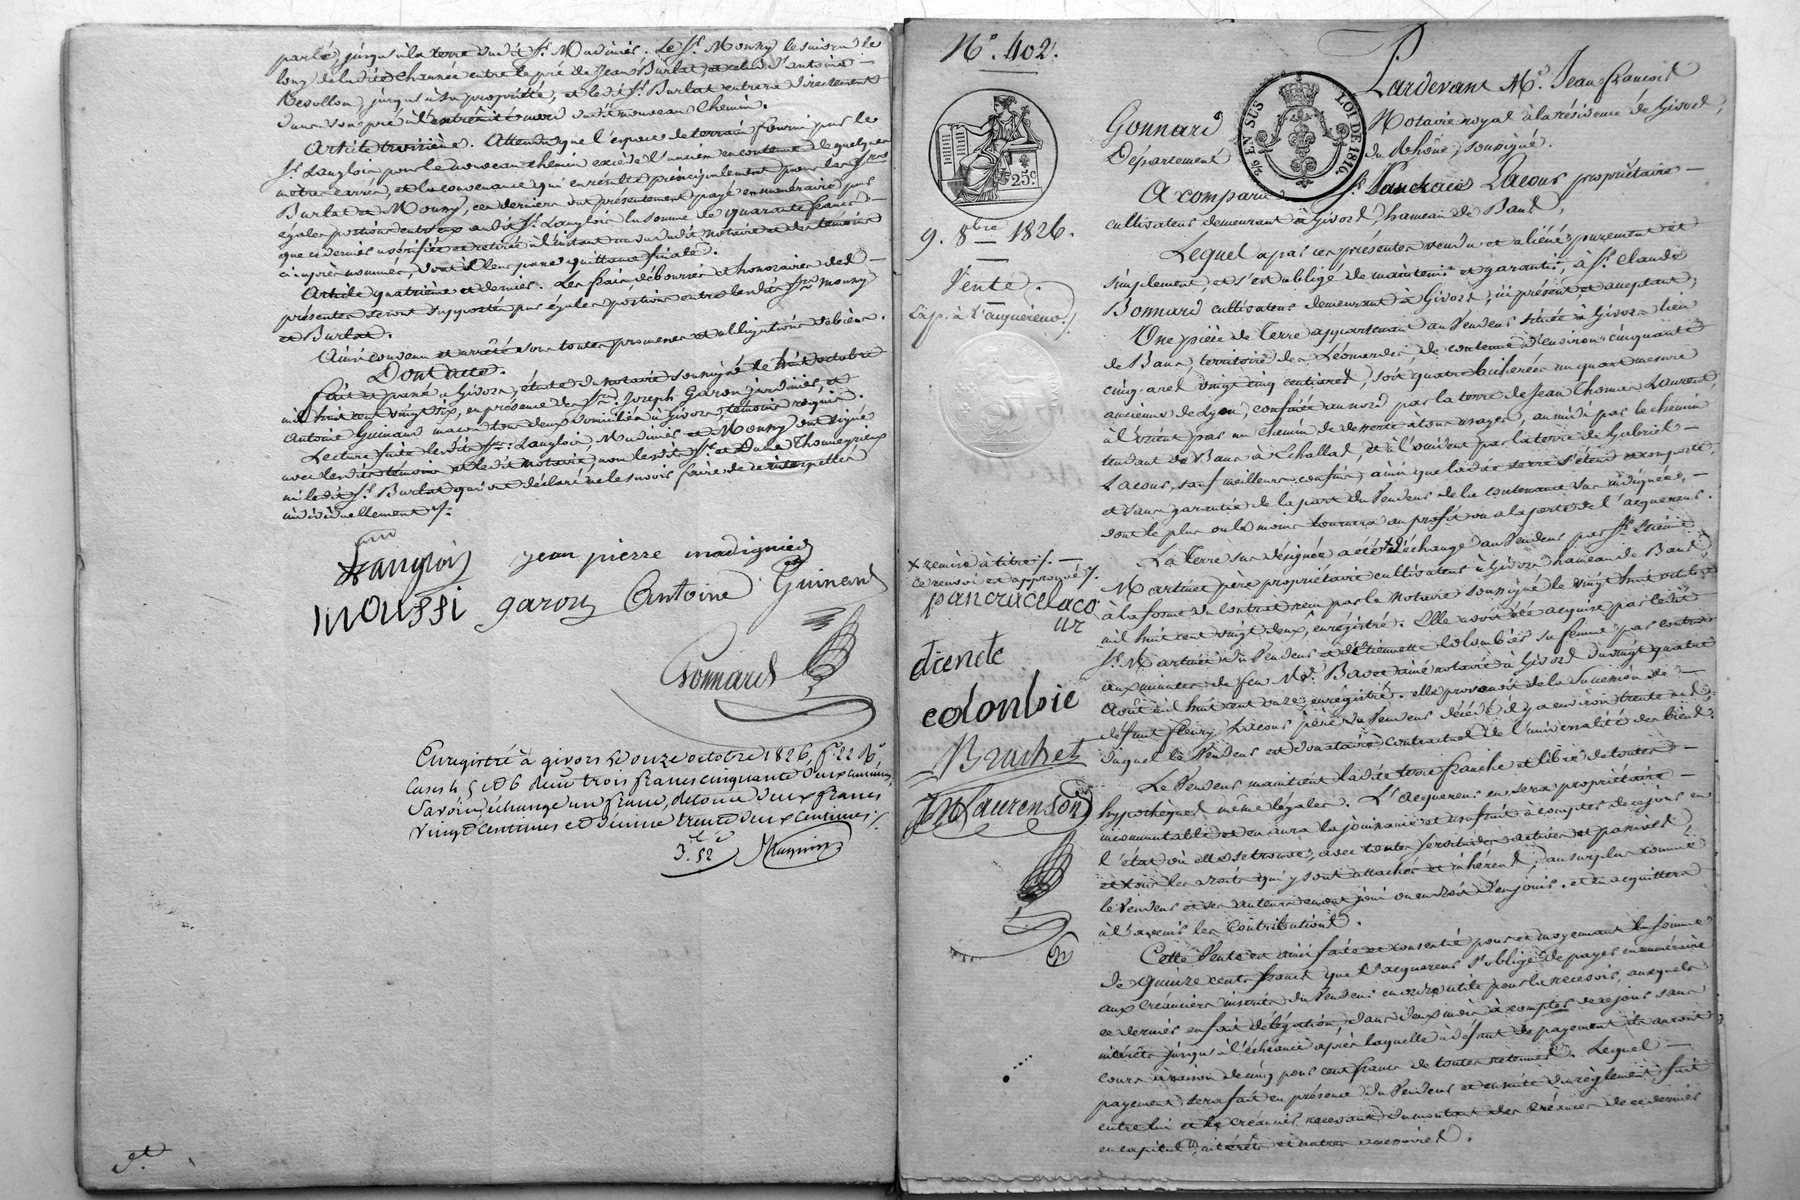 parlé, jusqu'à la terre dudit Sr. Madinier. Le Sr. Mouny le suivra le
long de ladite charrière entre le pré de Jean Burlat et celui d'antoine
Revollon, jusqu'à sa propriété, et ledit Sr. Burlat entrera directement
dans son pré à l'extrêmité nord dudit nouveau chemin.
Article troisième. Attendu que l'espace de terrain fourni par le
Sr. Langlois pour le nouveau chemin excède l'ancien en contenue de quelques
mètres carrés, et la convenance qui en résulte principalement pour les Srs
Burlat et Mouny, ces derniers ont présentement payé en numéraire par
égales portions entr'eux audit Sr. Langlois la somme de quarante francs
que ce dernier a vérifiée et retirée à l'instant au vu dudit notaire et des témoins
ci-après nommés, dont il leur passe quittance finale.
Article quatrième et dernier. Les frais déboursés et honoraires des
présentes seront supportés par égales portions entre lesdits Srs Mouny
et Burlat.
Ainsi convenu et arrêté sous toutes promesses et obligations de biens.
Dont acte.
Fait et passé à Givors, étude du notaire soussigné le huit octobre
mil huit cent vingt six, en présence des Srs. Joseph Garon jardinier, et
Antoine Guinard maçon tous deux domiciliés à Givors, témoins requis.
Lecture faite lesdits Srs. Langlois, Madinier et Mouny ont signé
avec lesdits témoins et ledit notaire, non lesdits Sr. et Dame Thomeyrieux
ni ledit Sr. Burlat qui ont déclaré ne le savoir faire de ce interpellés
individuellement
Langlois jean pierre madignier
mOussi garon Antoine Guinard
Gonnard
Enregistré à givors le Douze octobre 1826, fo. 22 Ro.
Cases 4 5 et 6 reçu trois francs cinquante deux centimes
Savoir échange un franc, retour deux francs
vingt centimes et décime trente deux centimes
3. 52
No. 402.
25c.
26 EN SUS LOI DE 1816
Pardevant Me. Jean François
Gonnard Notaire royal à la résidence de Givors,
Département du Rhône, soussigné.
A comparu Sr. Pancrace Lacour propriétaire
9. 8bre 1826.
cultivateur demeurant à Givors, hameau de Bans,
Lequel a par ces présentes vendu et aliéné purement et
Vente.
simplement, et s'est obligé de maintenir et garantir, à Sr. Claude
Exp. à l'acquéreur
Bonnard cultivateur demeurant à Givors, ici présent, et acceptant,
Une pièce de Terre appartenant au Vendeur située à Givors lieu
de Bans, territoire de Léomardes, de contenue d'environ cinquante
cinq ares vingt cinq centiares, soit quatre bicherées un quart mesure
ancienne de Lyon, confinée au nord par la terre de Jean Thomas Laurent,
à l'orient par un chemin de desserte à tous usages, au midi par le chemin
tendant de Bans à Echallas, et à l'occident par la terre de Gabriel
Lacour, sauf meilleurs confins, ainsi que ladite terre s'étend et comporte,
et sans garantie de la part du Vendeur de la contenance sus indiquée,
dont le plus ou le moins tournera au profit ou à la perte de l'acquéreur.
La Terre sus désignée a été x d'échange au Vendeur par Sr. Etienne
x remise à titre
ce renvoi est approuvé
Martinet père propriétaire cultivateur à Givors hameau de Bans
pancracelaco
ur
à la forme du contrat reçu par le Notaire soussigné le vingt huit octobre
mil huit cent vingt deux, enregistré. Elle avoit été acquise par ledit
étiende
Sr. Martinet du Vendeur et d'Etiennette Colombier sa femme par contrat
colonbie
aux minutes de feu Me. Bavoz aîné notaire à Givors du vingt quatre
août mil huit cent onze, enregistré. elle provenoit de la Succession de
Brachet
défunt fleury Lacour père du Vendeur décédé il y a environ trente ans,
duquel le Vendeur est donataire contractuel de l'universalité des biens.
Laurenson
Le Vendeur maintient ladite terre franche et libre de toutes
hypothèques même légales. L'acquéreur en sera propriétaire
incommutable et en aura la jouissance et usufruit à compter de ce jour en
l'état où elle se trouve, avec toutes servitudes actives et passives,
et tous les droits qui y sont attachés et inhérens, au surplus comme
le Vendeur et ses auteurs en ont joui ou eu droit d'en jouir. et en acquittera
à l'avenir les Contributions.
Cette Vente est ainsi faite et consentie pour et moyennant la somme
de quinze cents francs que l'acquéreur s'oblige de payer en numéraire
aux créanciers inscrits du Vendeur en ordre utile pour la recevoir, auxquels
ce dernier en fait délégation, dans deux mois à compter de ce jour sans
intérêts jusqu'à l'échéance après laquelle à défaut de payement ils auront
cours à raison de cinq pour cent francs de toutes retenues. Lequel
payement sera fait en présence du Vendeur et ensuite du règlement fait
entre lui et le créancier recevant du montant des créances de ce dernier
en capital, intérêts et autres accessoires.